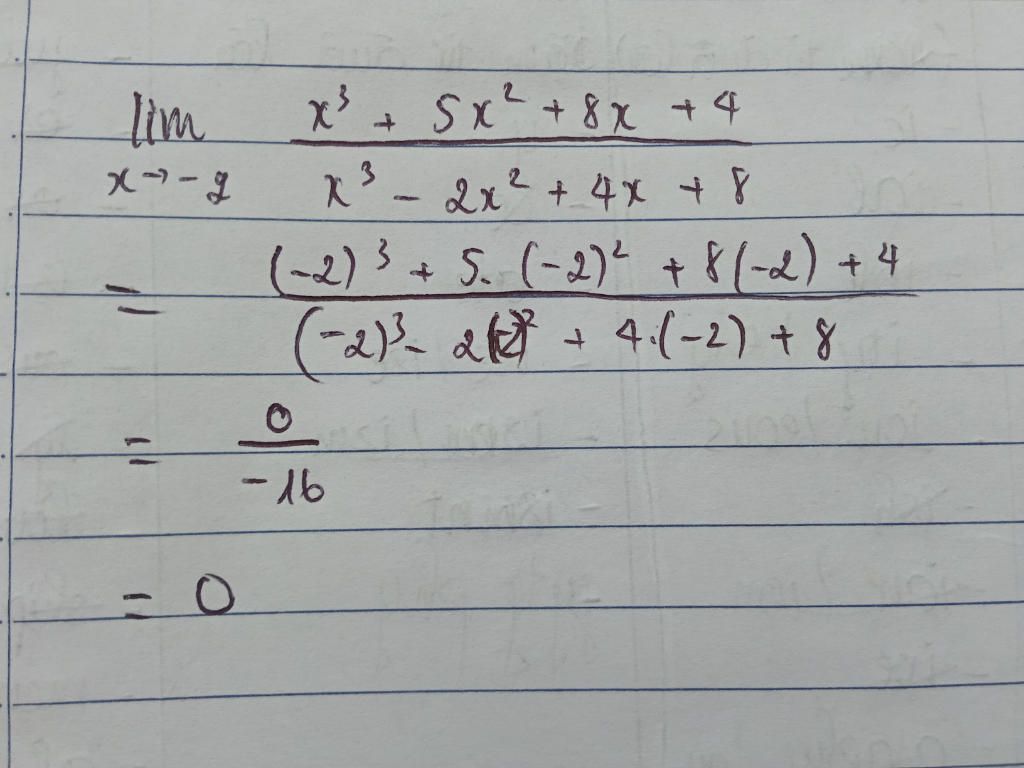 lim x³ + 5x² + 8x + 4
x→-2 x³ - 2x² + 4x + 8
= (-2)³ + 5. (-2)² + 8(-2) + 4
(-2)³ - 2(-2)² + 4.(-2) + 8
= 0
-16
= 0